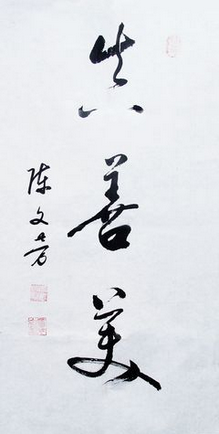 真善美
陈文芳